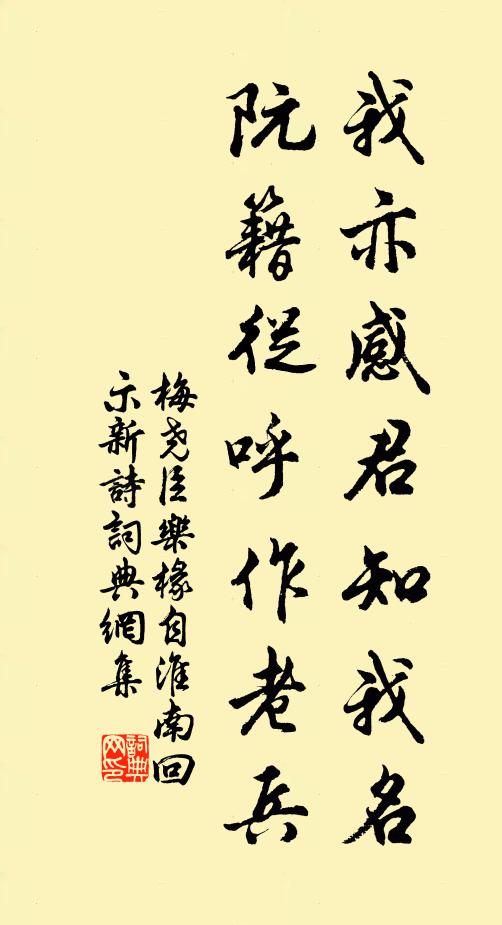 我亦感君知我名
阮籍從呼作老兵
梅堯臣樂椽自淮南回
示新詩詞典網集
詞典
网印